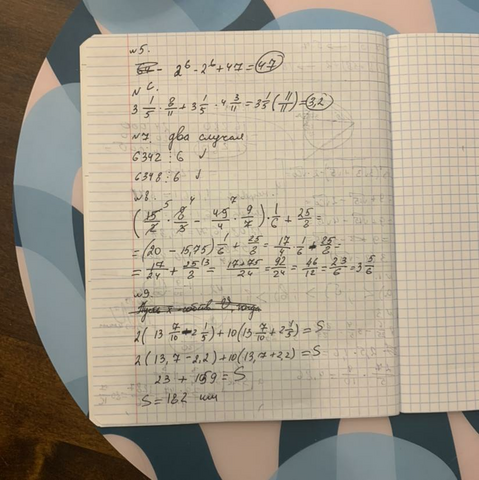 №5.
2⁶ - 2⁶ + 47 = 47
№6.
3 1/5 · 8/11 + 3 1/5 · 4 3/11 = 3 1/5 (11/11) = 3,2
№7. два случая
6342 ⋮ 6 ✓
6348 ⋮ 6 ✓
№8.
(25/2 · 8/5 - 45/4 · 9/7) · 1/6 + 25/8 =
= (20 - 15,75) 1/6 + 25/8 = 17/4 · 1/6 + 25/8 =
= 17/24 + 25/8 = 17+75/24 = 92/24 = 46/12 = 23/6 = 3 5/6
№9.
2(13 7/10 - 2 1/5) + 10(13 7/10 + 2 1/5) = S
2(13,7 - 2,2) + 10(13,7 + 2,2) = S
23 + 159 = S
S = 182 км